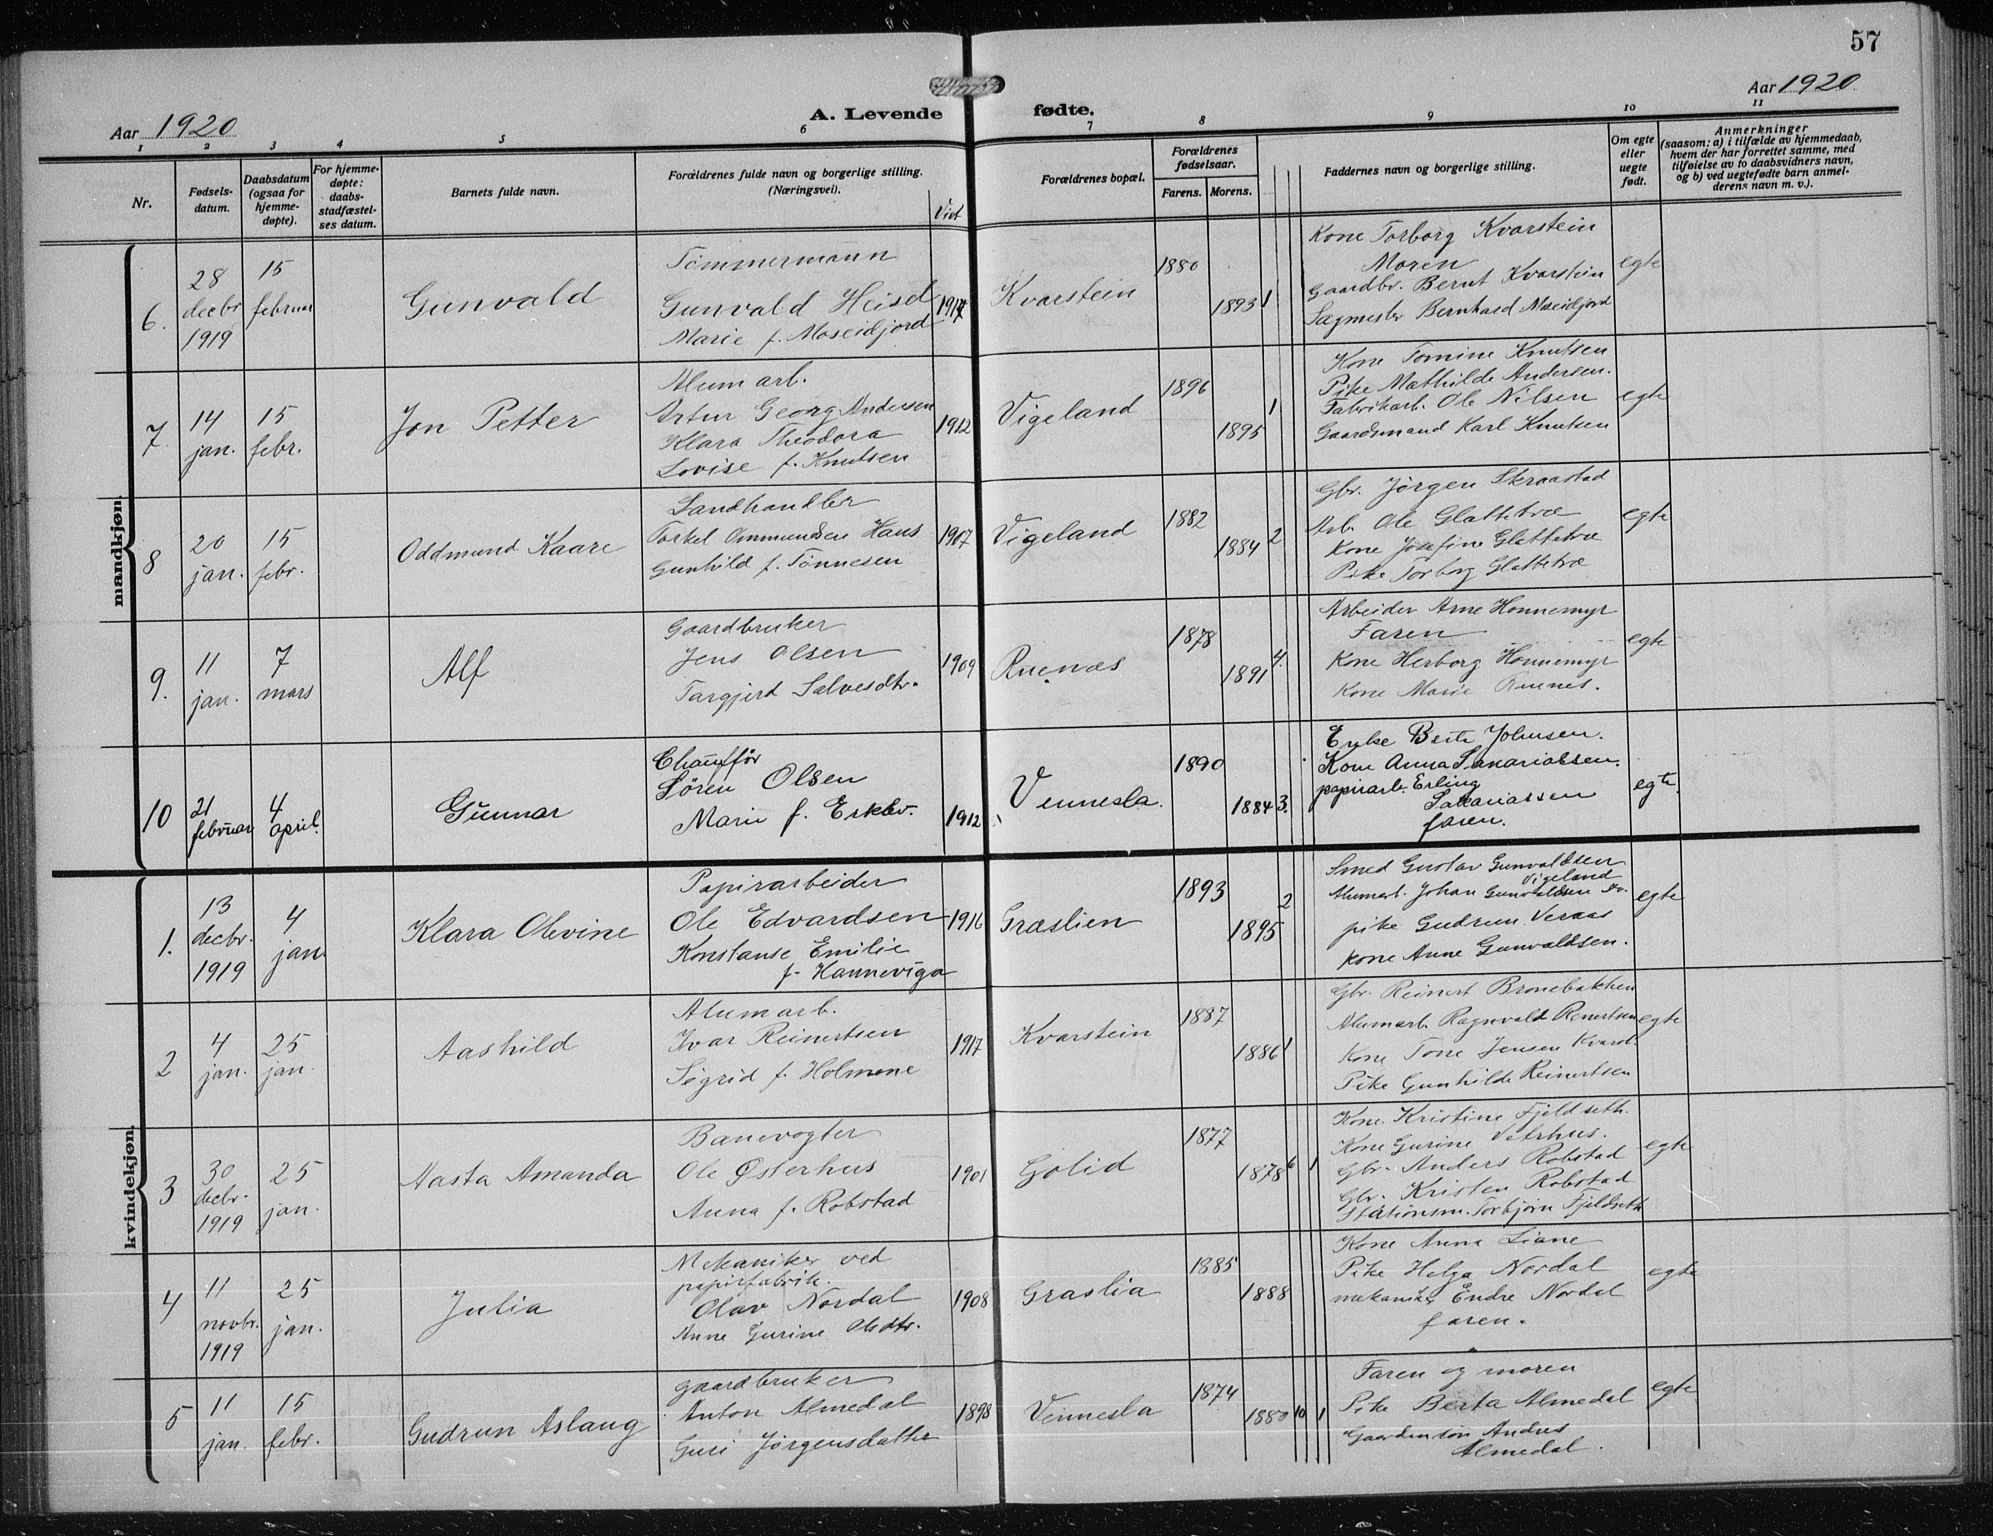 57
Aar 1920
A. Levende fødte.
Aar 1920
1 2 3 4 5 6 7 8 9 10 11
Nr.
Fødsels-
datum.
Daabsdatum
(ogsaa for
hjemme-
døpte).
For hjemme-
døpte:
daabs-
stadfæstel-
ses datum.
Barnets fulde navn.
Forældrenes fulde navn og borgerlige stilling.
(Næringsvei).
Viet
Forældrenes bopæl.
Forældrenes
fødselsaar.
Farens. Morens.
Faddernes navn og borgerlige stilling.
Om egte
eller
uegte
født.
Anmerkninger
(saasom: a) i tilfælde av hjemmedaab,
hvem der har forrettet samme, med
tilføielse av to daabsvidners navn,
og b) ved uegtefødte barn anmel-
derens navn m. v.).
mandkjøn.
6.
28
decbr
1919
15
februar
Gunvald
Tømmermann
Gunvald Heisel
Marie f. Moseidjord
1917
Kvarstein
1880
1893
1
Kone Torborg Kvarstein
Moren
Gaardbr. Bernt Kvarstein
Sagmester Bernhard Moseidjord
egte
7
14
jan.
15
febr.
Jon Petter
Alum arb.
Artur Georg Andersen
Klara Theodora
Lovise f. Knutsen
1912
Vigeland
1896
1895
1
Kone Tomine Knutsen
Pike Mathilde Andersen.
Fabrikarb. Ole Nilsen
Gaardsmand Karl Knutsen
egte
8
20
jan.
15
febr.
Oddmund Kaare
Landhandler
Torkel Ommundsen Haus
Gunhild f. Tønnesen
1907
Vigeland
1882
1884
2
Gbr. Jørgen Skraastad
Arb. Ole Glattetræ
Kone Josefine Glattetræ
Pike Torborg Glattetræ
egte
9.
11
jan.
7
mars
Alf
Gaardbruker
Jens Olsen
Targjerd Salvesdtr.
1909
Ruenæs
1878
1891
4.
Arbeider Arne Honnemyr
Faren
Kone Herborg Honnemyr
Kone Marie Ruenes.
egte
10
21
februar
4
april.
Gunnar
Chauffør
Søren Olsen
Marie f.
1912
Vennesla.
1890
1884
3.
Enke Berte Johnsen.
Kone Anna Sakariassen.
papirarb. Erling
Sakariassen
faren.
egte.
kvindekjøn.
1.
13
decbr.
1919
4
jan.
Klara Olevine
Papirarbeider
Ole Edvardsen
Konstanse Emilie
f. Hanneviga
1916
Graslien
1893
1895
2
Smed Gustav Gunvaldsen
Vigeland
Alumarb. Johan Gunvaldsen
pike Gudrun Veraas
kone Anne Gunvaldsen.
egte
2
4
jan.
25
jan.
Aashild
Alumarb.
Ivar Reinertsen
Sigrid f. Holmene
1917
Kvarstein
1887
1886
1
Gbr. Reinert Bronebakken
Alumarb. Ragnvald Renertsen
Kone Tone Jensen Kvarst.
Pike Gunhilde Reinertsen
egte
3
30
decbr.
1919
25
jan.
Aasta Amanda
Banevogter
Ole Østerhus
Anna f. Robstad
1901
Golid
1877
1878
6
1
Kone Kristine Fjeldseth.
Kone Gurine Vetrhus.
Gbr. Anders Robstad
Gbr. Kristen Robstad
Stationsm. Torbjørn Fjeldseth
egte
4
11
novbr.
1919
25
jan.
Julia
Mekaniker ved
papirfabrik.
Olav Nordal
Anne Gurine Olsdtr.
1908
Graslia
1885
1888
Kone Anna Liane
Pike Helga Nordal
mekaniker Endre Nordal
faren.
egte
5
11
jan.
15
febr.
Gudrun Aslaug
gaardbruker
Anton Almedal
Guri Jørgensdatter
1898
Vennesla
1874
1880
10
1
Faren og moren
Pike Berta Almedal
Gaardmsøn Andres
Almedal.
egte